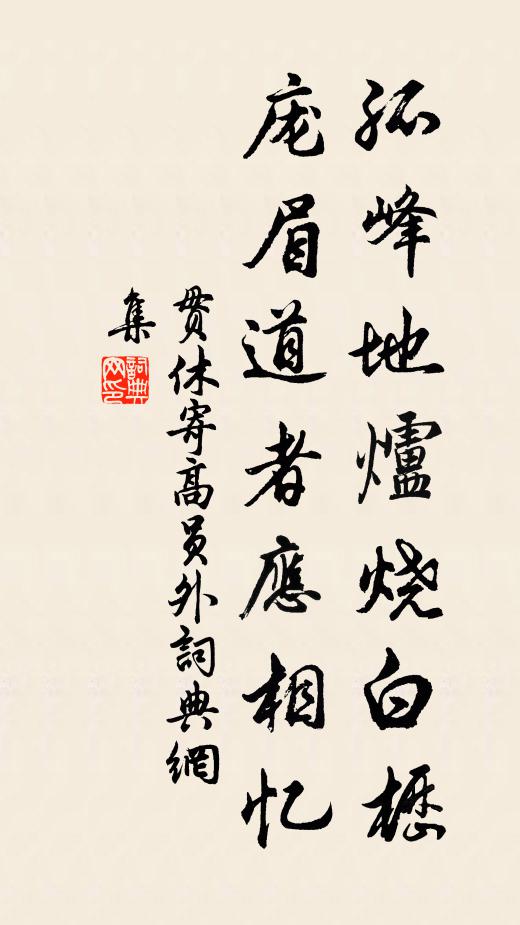 孤峰地爐烧白櫪
庞眉道者應相忆
贯休寄高員外詞典網
集
詞典
网印